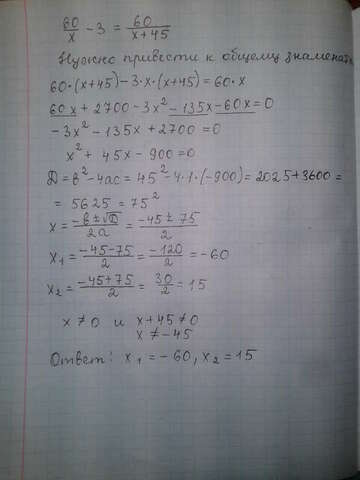 60/x - 3 = 60/(x+45)
Нужно привести к общему знаменат
60·(x+45)-3·x·(x+45)=60·x
60x+2700-3x²-135x-60x=0
-3x²-135x+2700=0
x²+45x-900=0
D=b²-4ac=45²-4·1·(-900)=2025+3600=
=5625=75²
x=(-b±√D)/2a=(-45±75)/2
x₁=(-45-75)/2=-120/2=-60
x₂=(-45+75)/2=30/2=15
x≠0 и x+45≠0
x≠-45
Ответ: x₁=-60, x₂=15